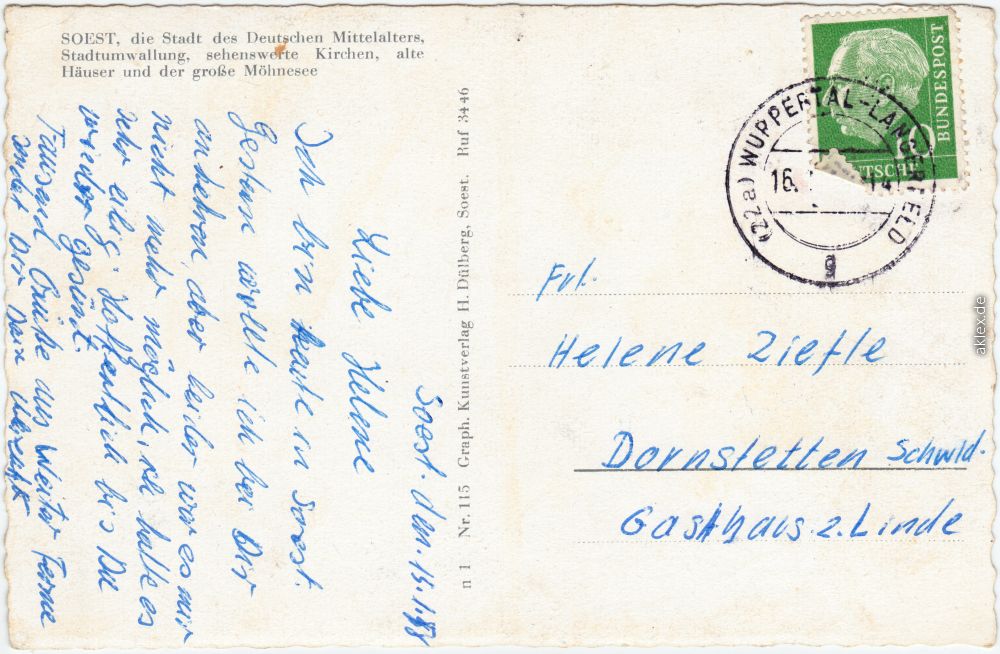 SOEST, die Stadt des Deutschen Mittelalters,
Stadtumwallung, sehenswerte Kirchen, alte
Häuser und der große Möhnesee
Soest. den. 15.1.
Liebe Helene
Ich bin heute in Soest.
Gestern wollte ich bei Dir
ankehren, aber leider war es mir
nicht mehr möglich, ich hatte es
sehr eilig. Hoffentlich bis Du
wieder gesund.
Tausend Grüße aus weiter Ferne
sendet Dir Dein
n 1 Nr. 115 Graph. Kunstverlag H. Dülberg, Soest. Ruf 3446
BUNDESPOST
DEUTSCHE
(22a) WUPPERTAL-LANGERFELD
16.
g
Frl.
Helene Ziefle
Dornstetten Schwld.
Gasthaus z. Linde
aklex.de